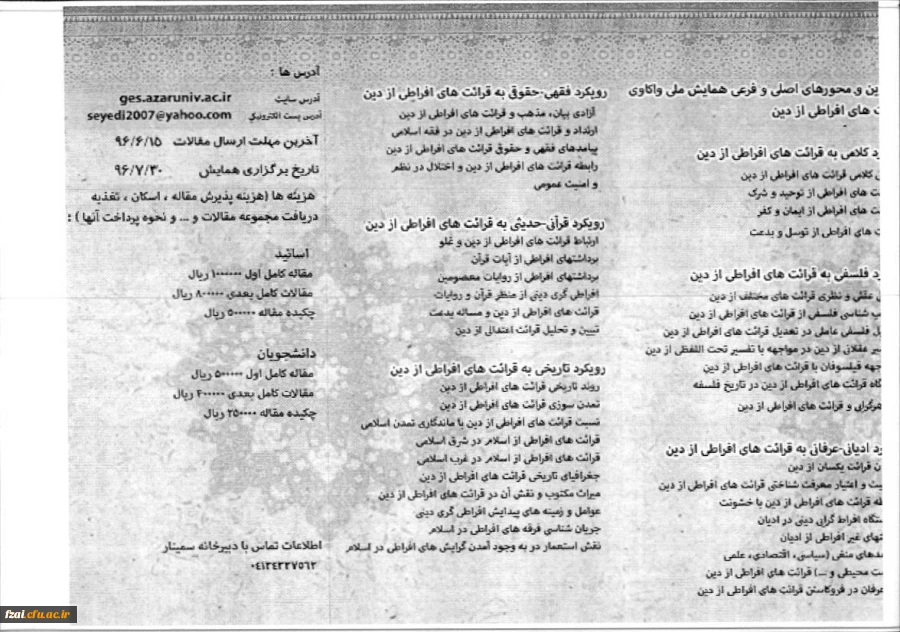 ین و محورهای اصلی و فرعی همایش ملی واکاوی
ت های افراطی از دین
د کلامی به قرائت های افراطی از دین
کلامی قرائت های افراطی از دین
ت های افراطی از توحید و شرک
ت های افراطی از ایمان و کفر
ت های افراطی از توسل و بدعت
د فلسفی به قرائت های افراطی از دین
عقلی و نظری قرائت های مختلف از دین
ب شناسی فلسفی از قرائت های افراطی از دین
ل فلسفی عاملی در تعدیل قرائت های افراطی از دین
یر عقلانی از دین در مواجهه با تفسیر تحت اللفظی از دین
جهه فیلسوفان با قرائت های افراطی از دین
گاه قرائت های افراطی از دین در تاریخ فلسفه
هرگرایی و قرائت های افراطی از دین
د ادیانی-عرفانی به قرائت های افراطی از دین
ن قرائت یکسان از دین
یت و اعتبار معرفت شناختی قرائت های افراطی از دین
طه قرائت های افراطی از دین با خشونت
ستگاه افراط گرایی دینی در ادیان
تهای غیر افراطی از ادیان
مدهای منفی (سیاسی، اقتصادی، علمی
ست محیطی و ...) قرائت های افراطی از دین
عرفان در فروکاستن قرائت های افراطی از دین
رویکرد فقهی-حقوقی به قرائت های افراطی از دین
آزادی بیان، مذهب و قرائت های افراطی از دین
ارتداد و قرائت های افراطی از دین در فقه اسلامی
پیامدهای فقهی و حقوق قرائت های افراطی از دین
رابطه قرائت های افراطی از دین و اختلال در نظم
و امنیت عمومی
رویکرد قرآنی-حدیثی به قرائت های افراطی از دین
ارتباط قرائت های افراطی از دین و غلو
برداشتهای افراطی از آیات قرآن
برداشتهای افراطی از روایات معصومین
افراطی گری دینی از منظر قرآن و روایات
قرائت های افراطی از دین و مساله بدعت
تبیین و تحلیل قرائت اعتدالی از دین
رویکرد تاریخی به قرائت های افراطی از دین
روند تاریخی قرائت های افراطی از دین
تمدن سوزی قرائت های افراطی از دین
نسبت قرائت های افراطی از دین با ماندگاری تمدن اسلامی
قرائت های افراطی از اسلام در شرق اسلامی
قرائت های افراطی از اسلام در غرب اسلامی
جغرافیای تاریخی قرائت های افراطی از دین
میراث مکتوب و نقش آن در قرائت های افراطی از دین
عوامل و زمینه های پیدایش افراطی گری دینی
جریان شناسی فرقه های افراطی در اسلام
نقش استعمار در به وجود آمدن گرایش های افراطی در اسلام
آدرس ها :
آدرس سایت ges.azaruniv.ac.ir
آدرس پست الکترونیکی seyedi2007@yahoo.com
آخرین مهلت ارسال مقالات ۹۶/۶/۱۵
تاریخ برگزاری همایش ۹۶/۷/۳۰
هزینه ها (هزینه پذیرش مقاله ، اسکان ، تغذیه
دریافت مجموعه مقالات و ... و نحوه پرداخت آنها ) :
اساتید
مقاله کامل اول ۱۰۰۰۰۰۰ ریال
مقالات کامل بعدی ۸۰۰۰۰۰ ریال
چکیده مقاله ۵۰۰۰۰۰ ریال
دانشجویان
مقاله کامل اول ۵۰۰۰۰۰ ریال
مقالات کامل بعدی ۴۰۰۰۰۰ ریال
چکیده مقاله ۲۵۰۰۰۰ ریال
اطلاعات تماس با دبیرخانه سمینار
۰۴۱۳۴۳۲۷۵۶۲
fzai.cfu.ac.ir